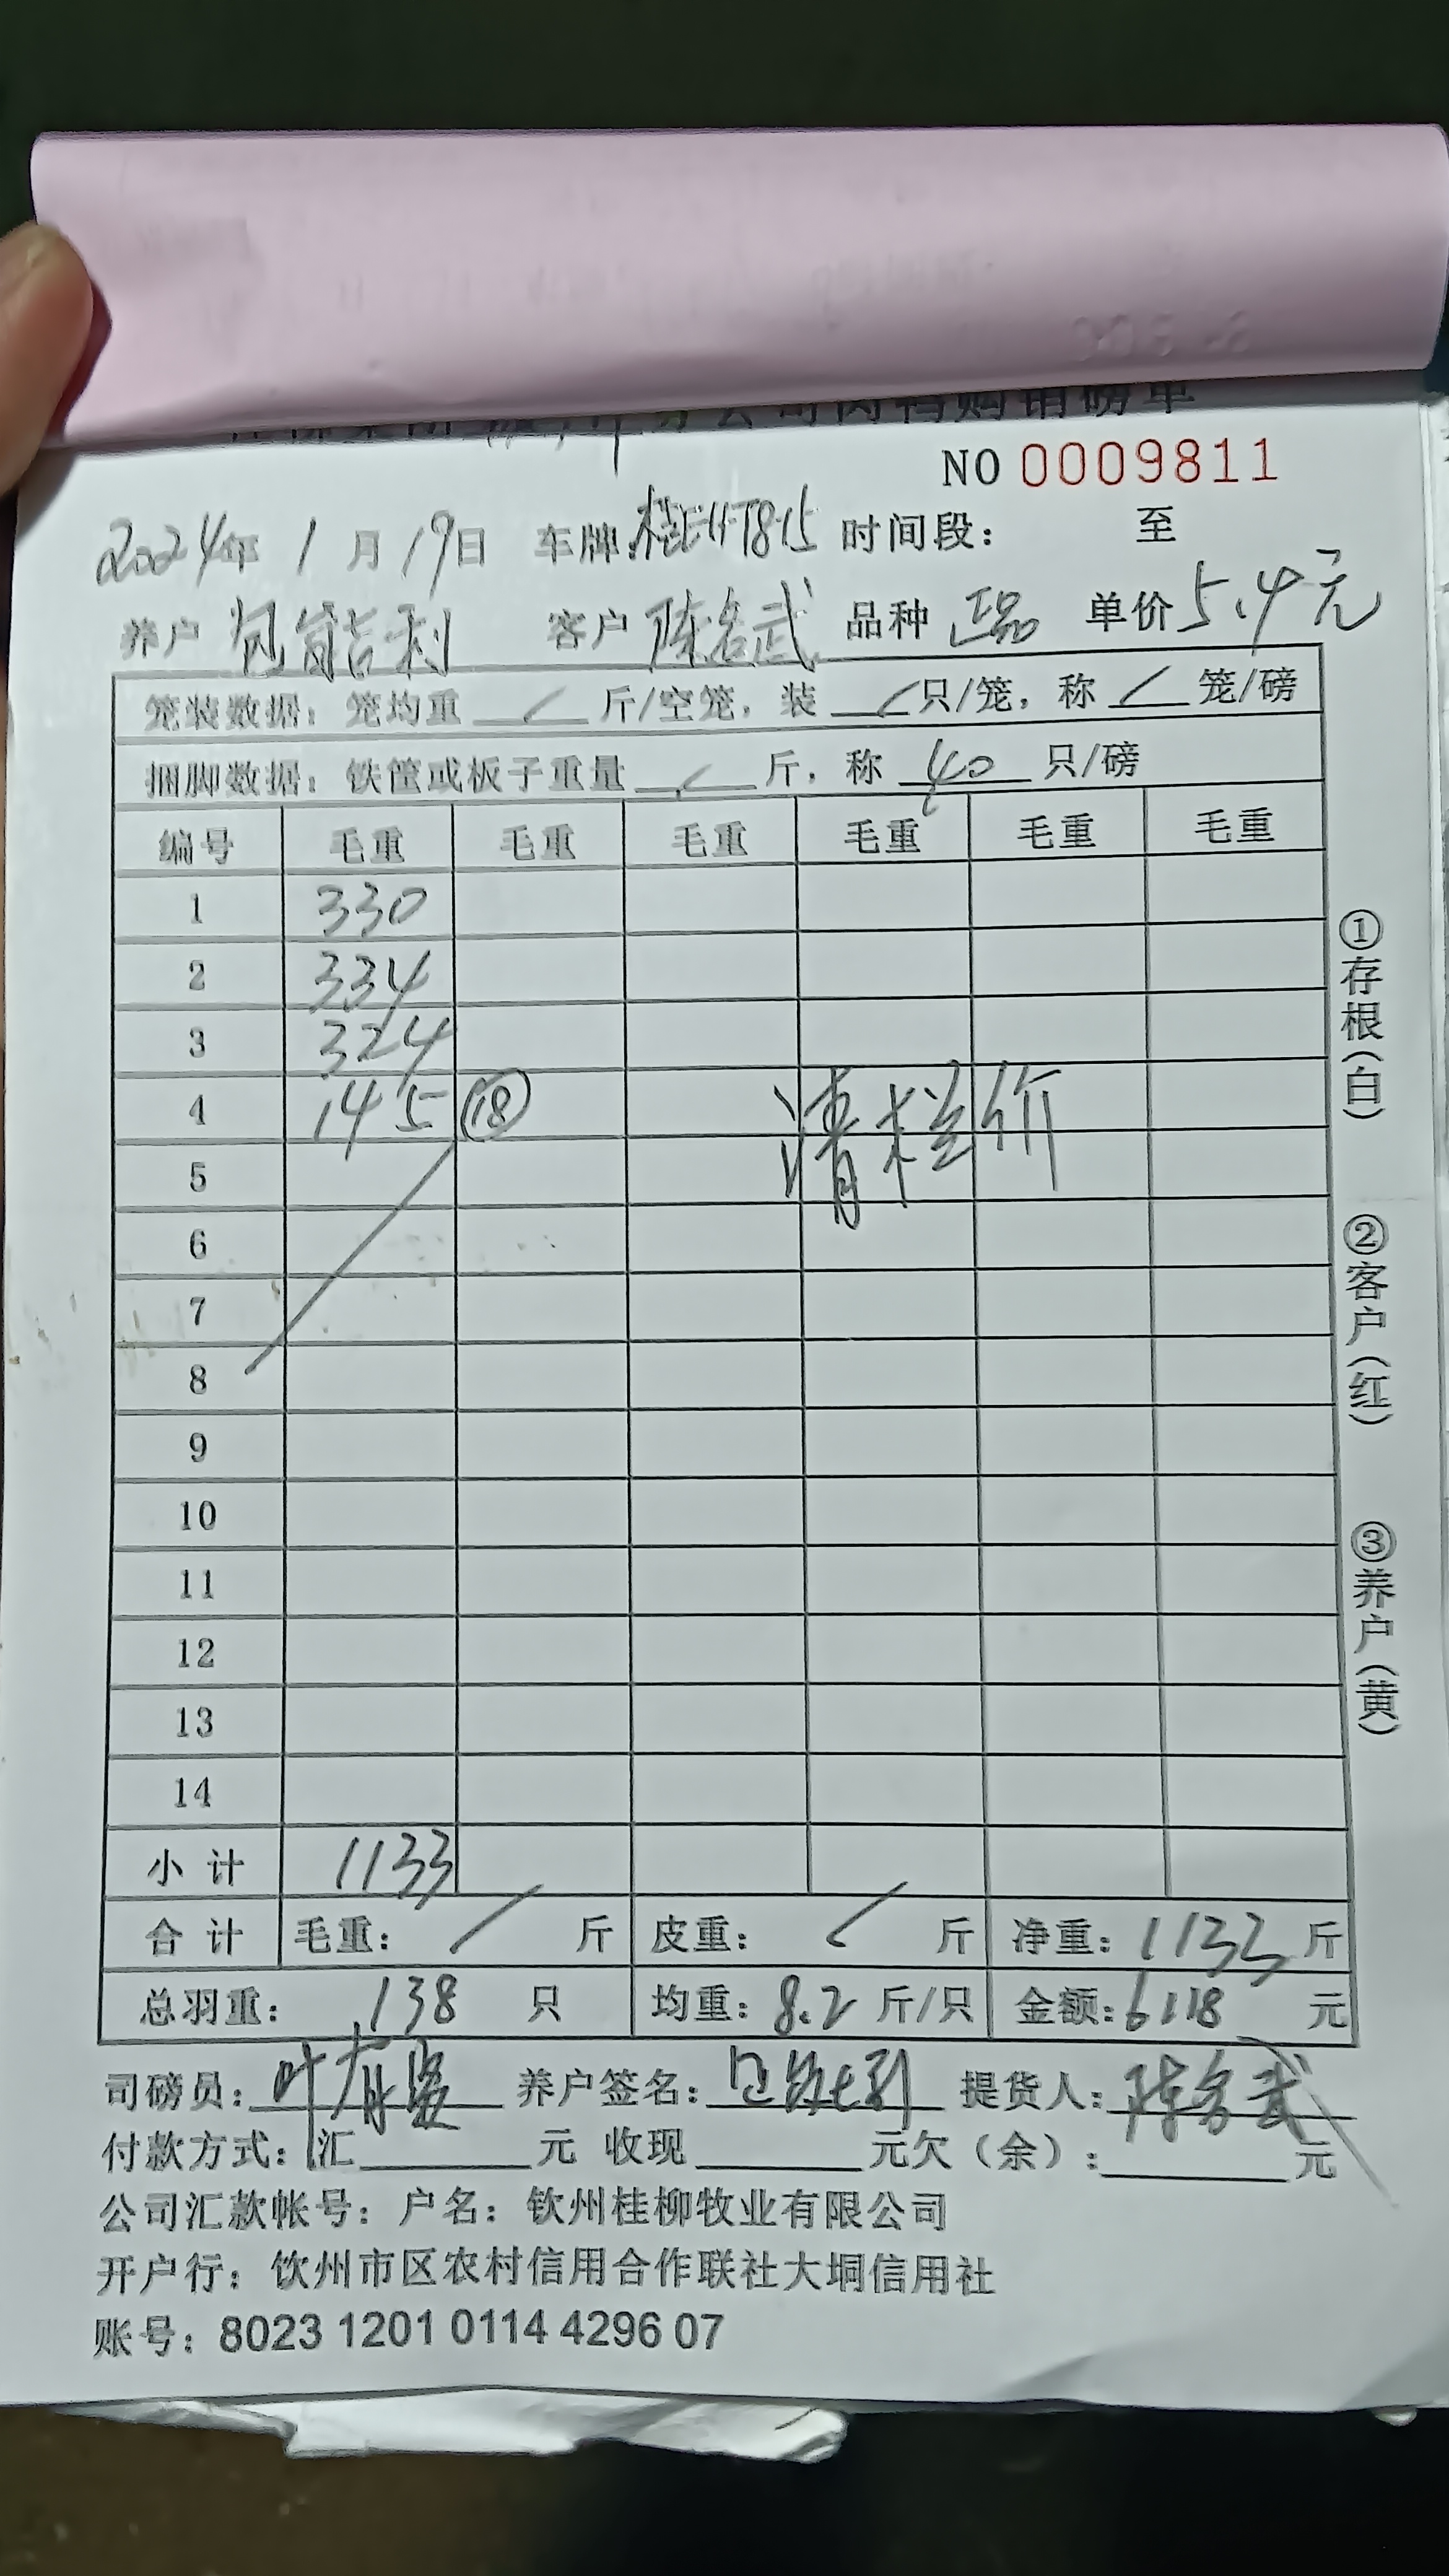 分公司肉鸭购销磅单
NO 0009811
2024年 1 月 19日 车牌: 时间段: 至
养户 客户 陈名武 品种 正品 单价 5.4元
笼装数据: 笼均重 / 斤/空笼, 装 / 只/笼, 称 / 笼/磅
捆脚数据: 铁筐或板子重量 / 斤, 称 40 只/磅
编号 毛重 毛重 毛重 毛重 毛重 毛重
1 330
2 334
3 324
4 145 ⑱
清栏价
5
6
7
8
9
10
11
12
13
14
小计 1133
合计 毛重: / 斤 皮重: / 斤 净重: 1133 斤
总羽重: 138 只 均重: 8.2 斤/只 金额: 6118 元
司磅员: 养户签名: 提货人: 陈名武
付款方式: 汇 元 收现 元欠(余): 元
公司汇款帐号: 户名: 钦州桂柳牧业有限公司
开户行: 钦州市区农村信用合作联社大垌信用社
账号: 8023 1201 0114 4296 07
①存根(白)
②客户(红)
③养户(黄)